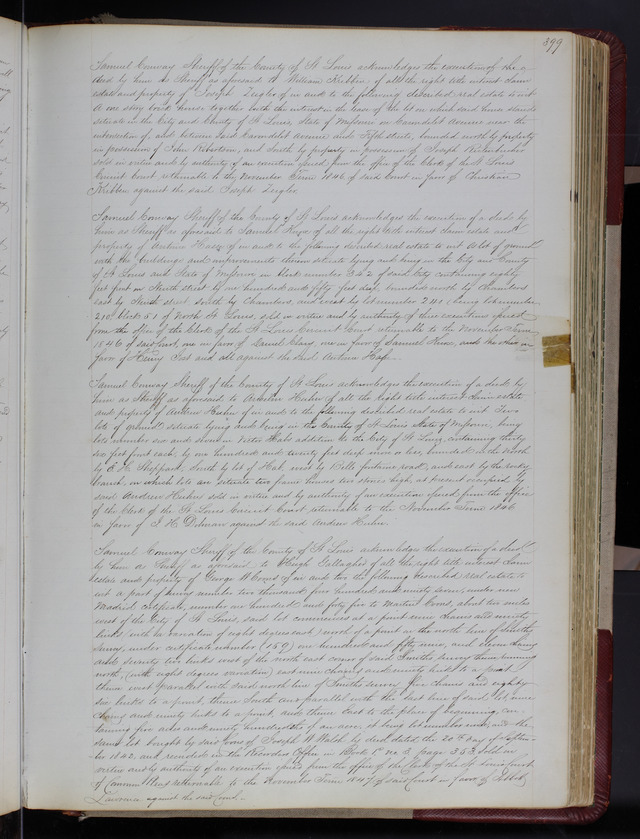 399
Samuel Conway Sheriff of the County of St Louis acknowledges the execution of a
deed by him as Sheriff as aforesaid to William Kribben, of all the right title interest claim
estate and property of Joseph Zeigler of in and to the following described real estate to wit
A one story brick house together with the interest in the lease of the lot on which said house stands
situate in the City and County of St Louis, State of Missouri on Carondelet Avenue near the
intersection of, and between said Carondelet avenue, and Fifth streets, bounded north by property
in possession of John Robertson, and South by property in possession of Joseph
sold in virtue and by authority of an execution issued from the office of the Clerk of the St Louis
Circuit Court returnable to the November Term 1846 of said Court in favor of Christian
Kribben against the said Joseph Zeigler
Samuel Conway Sheriff of the County of St Louis acknowledges the execution of a deed by
him as Sheriff as aforesaid to Samuel Knox, of all the right title interest claim estate and
property of of in and to the following described real estate to wit A lot of ground
with the buildings and improvements thereon situate lying and being in the City and County
of St Louis and State of Missouri in Block number 342 of said City containing eighty
feet front on Ninth street by one hundred and fifty feet deep, bounded north by Chambers
east by Ninth street south by Chambers, and west by lot number 211, being lot number
210, Block 51 of North St Louis, sold in virtue and by authority of three executions issued
from the office of the Clerk of the St Louis Circuit Court returnable to the November Term
1846 of said Court, one in favor of Clary, one in favor of Samuel Knox, and the other in
favor of Henry and all against the said
Samuel Conway Sheriff of the County of St Louis acknowledges the execution of a deed by
him as Sheriff as aforesaid to Huhn of all the right title interest claim estate
and property of Andrew Huhn of in and to the following described real estate to wit Two
lots of ground situate lying and being in the County of St Louis State of Missouri, being
lots number six and seven in addition to the City of St Louis, containing thirty
six feet front each, by one hundred and twenty feet deep more or less, bounded on the North
by Sheppard, South by lot of west by Bellefontaine road, and east by the rocky
branch on which lots are situate two frame houses two stories high, at present occupied by
said Andrew Huhn sold in virtue and by authority of an execution issued from the office
of the Clerk of the St Louis Circuit Court returnable to the November Term 1846
in favor of J H against the said Andrew Huhn.
Samuel Conway Sheriff of the County of St Louis acknowledges the execution of a deed
by him as Sheriff as aforesaid to Hugh Gallagher of all the right title interest claim
estate and property of George W of in and to the following described real estate to
wit a part of survey number two thousand five hundred and ninety seven, under new
Madrid certificate number one hundred and forty five to Martin about ten miles
west of the City of St Louis, said lot commences at a point nine chains and seventy
links (with a variation of eight degrees east) north of a point in the north line of Smiths
survey, under certificate number (159) one hundred and fifty nine, and eleven chains
and seventy two links west of the north east corner of said Smiths survey thence running
north, (with eight degrees variation) east nine chains and seventy links to a point
thence west parallel with said north line of Smiths survey five chains and eighty
six links to a point, thence South and parallel with the east line of said lot nine
chains and seventy links to a point, and thence East to the place of beginning, con-
taining five acres and of an acre, it being lot number and the
same lot bought by said of Joseph W Walsh by deed dated the 20th day of Septem-
ber 1842, and recorded in the Recorders Office in Book no 3, page 353, sold in
virtue and by authority of an execution issued from the office of the Clerk of the St Louis Court
of Common Pleas returnable to the November Term 1847 of said Court in favor of
against the said